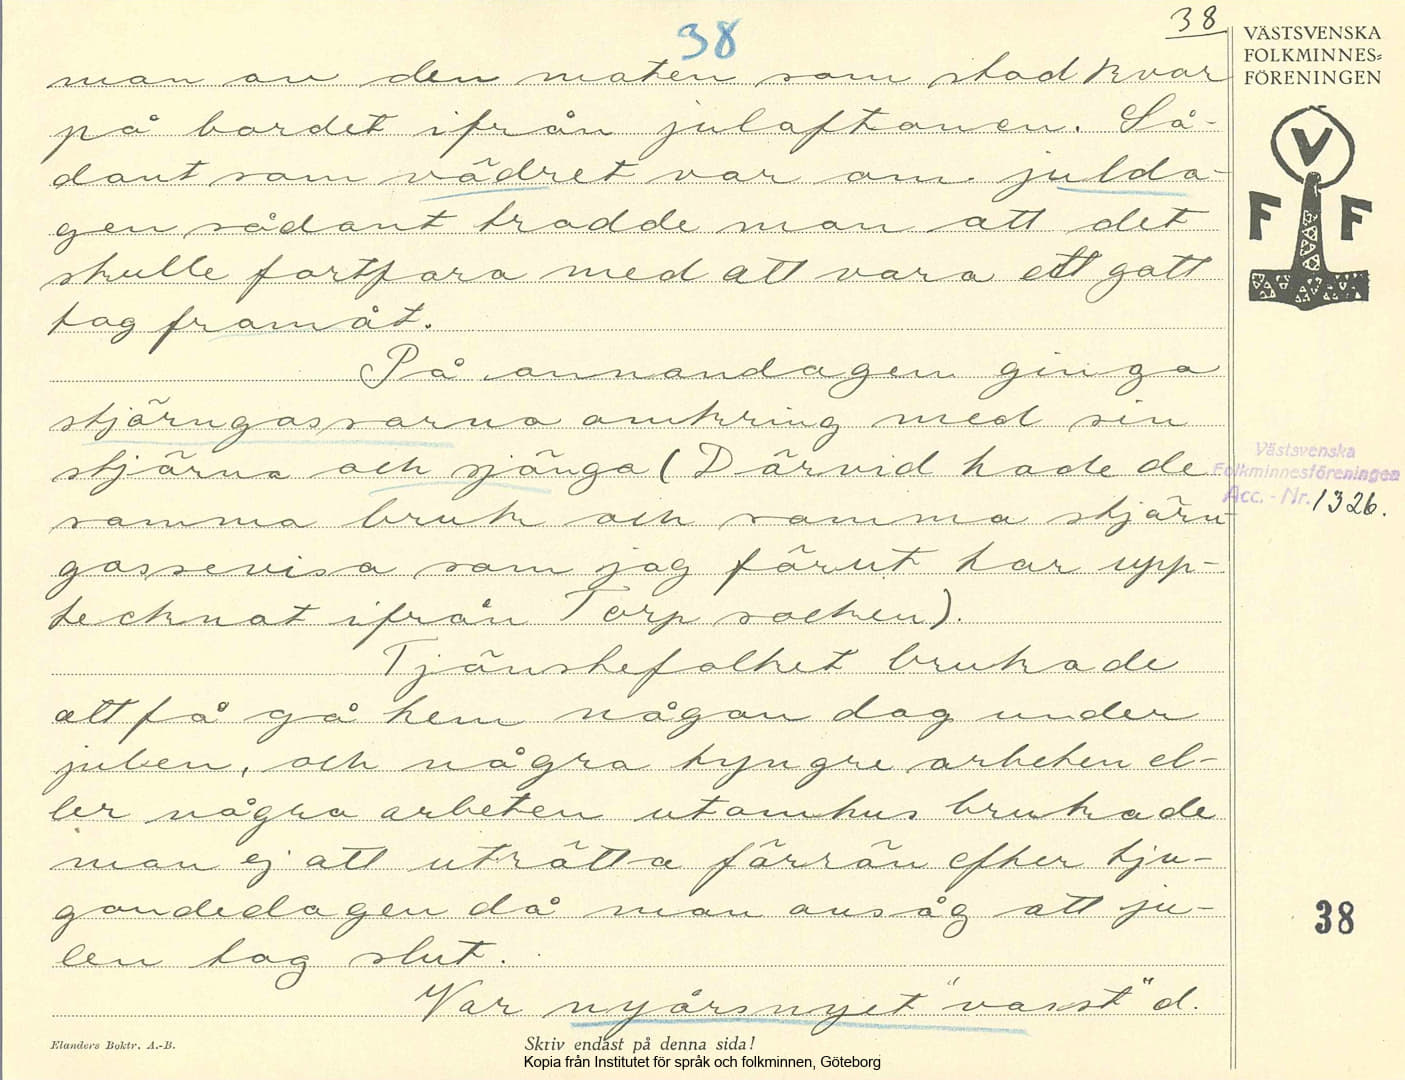 38
38
man av den maten som stod kvar
på bordet ifrån julaftonen. Så-
dant som vädret var om julda-
gen sådant trodde man att det
skulle fortfara med att vara ett gott
tag framåt.
På annandagen gingo
stjärngossarna omkring med sin
stjärna och sjönga (Därvid hade de
samma bruk och samma stjärn-
gossevisa som jag förut har upp-
tecknat ifrån Torp socken).
Tjänstefolket brukade
att få gå hem någon dag under
julen, och några tyngre arbeten el-
ler några arbeten utomhus brukade
man ej att uträtta förrän efter tju-
gondedagen då man ansåg att ju-
len tog slut.
Var nyårsnyet "vasst" d.
Elanders Boktr. A.-B.
Skriv endast på denna sida!
Kopia från Institutet för språk och folkminnen, Göteborg
VÄSTSVENSKA
FOLKMINNES=
FÖRENINGEN
V
F F
Västsvenska
Folkminnesföreningen
Acc. - Nr. 1326.
38